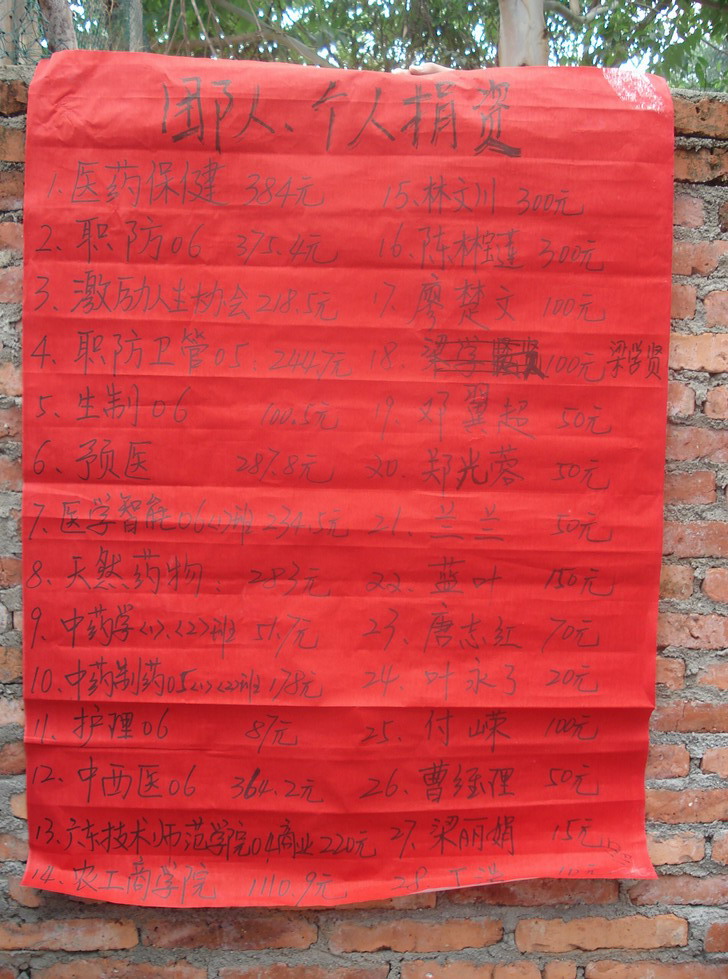 团队人、个人捐资
1.医药保健 384元
2、职防06 375.4元
3、激励人生协会218.5元
4、职防卫管05 244.7元
5、生制06 100.5元
6、预医 287.8元
7、医学智能06<1>班 234.5元
8、天然药物: 283元
9、中药学<1>、<2>班 51.7元
10、中药制药05<1><2>班 178元
11、护理06 87元
12、中西医06 364.2元
13、广东技术师范学院04商业220元
14、农工商学院 1110.9元
15、林文川 300元
16、陈林 300元
17、廖楚文 100元
18、100元 梁学贤
19、邓翼超 50元
20、郑光蓉 50元
21、兰兰 50元
22、蓝叶 150元
23、唐志红 70元
24、叶永 20元
25、付嵘 100元
26、曹经理 50元
27、梁丽娟 15元
28